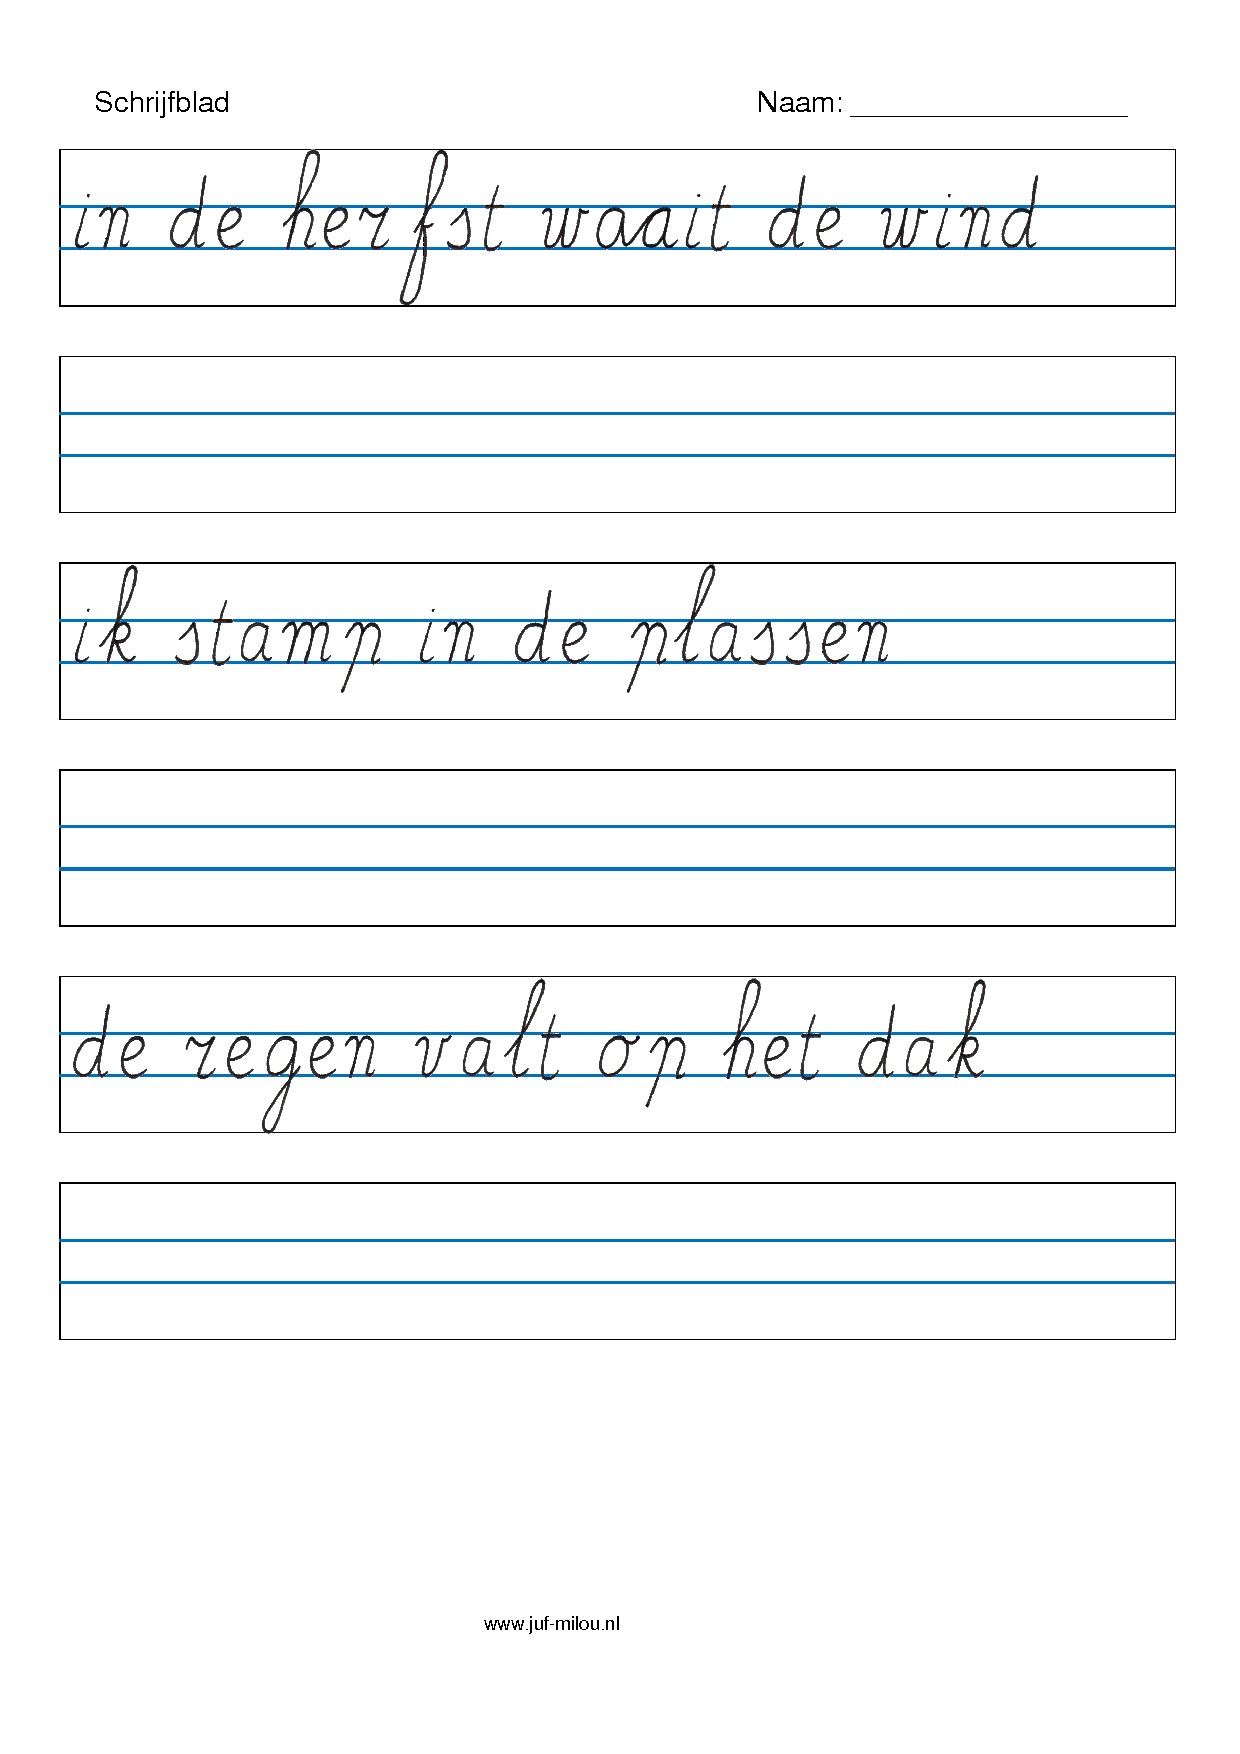 Schrijfblad Naam: ___________________
in de herfst waait de wind
ik stamp in de plassen
de regen valt op het dak
www.juf-milou.nl